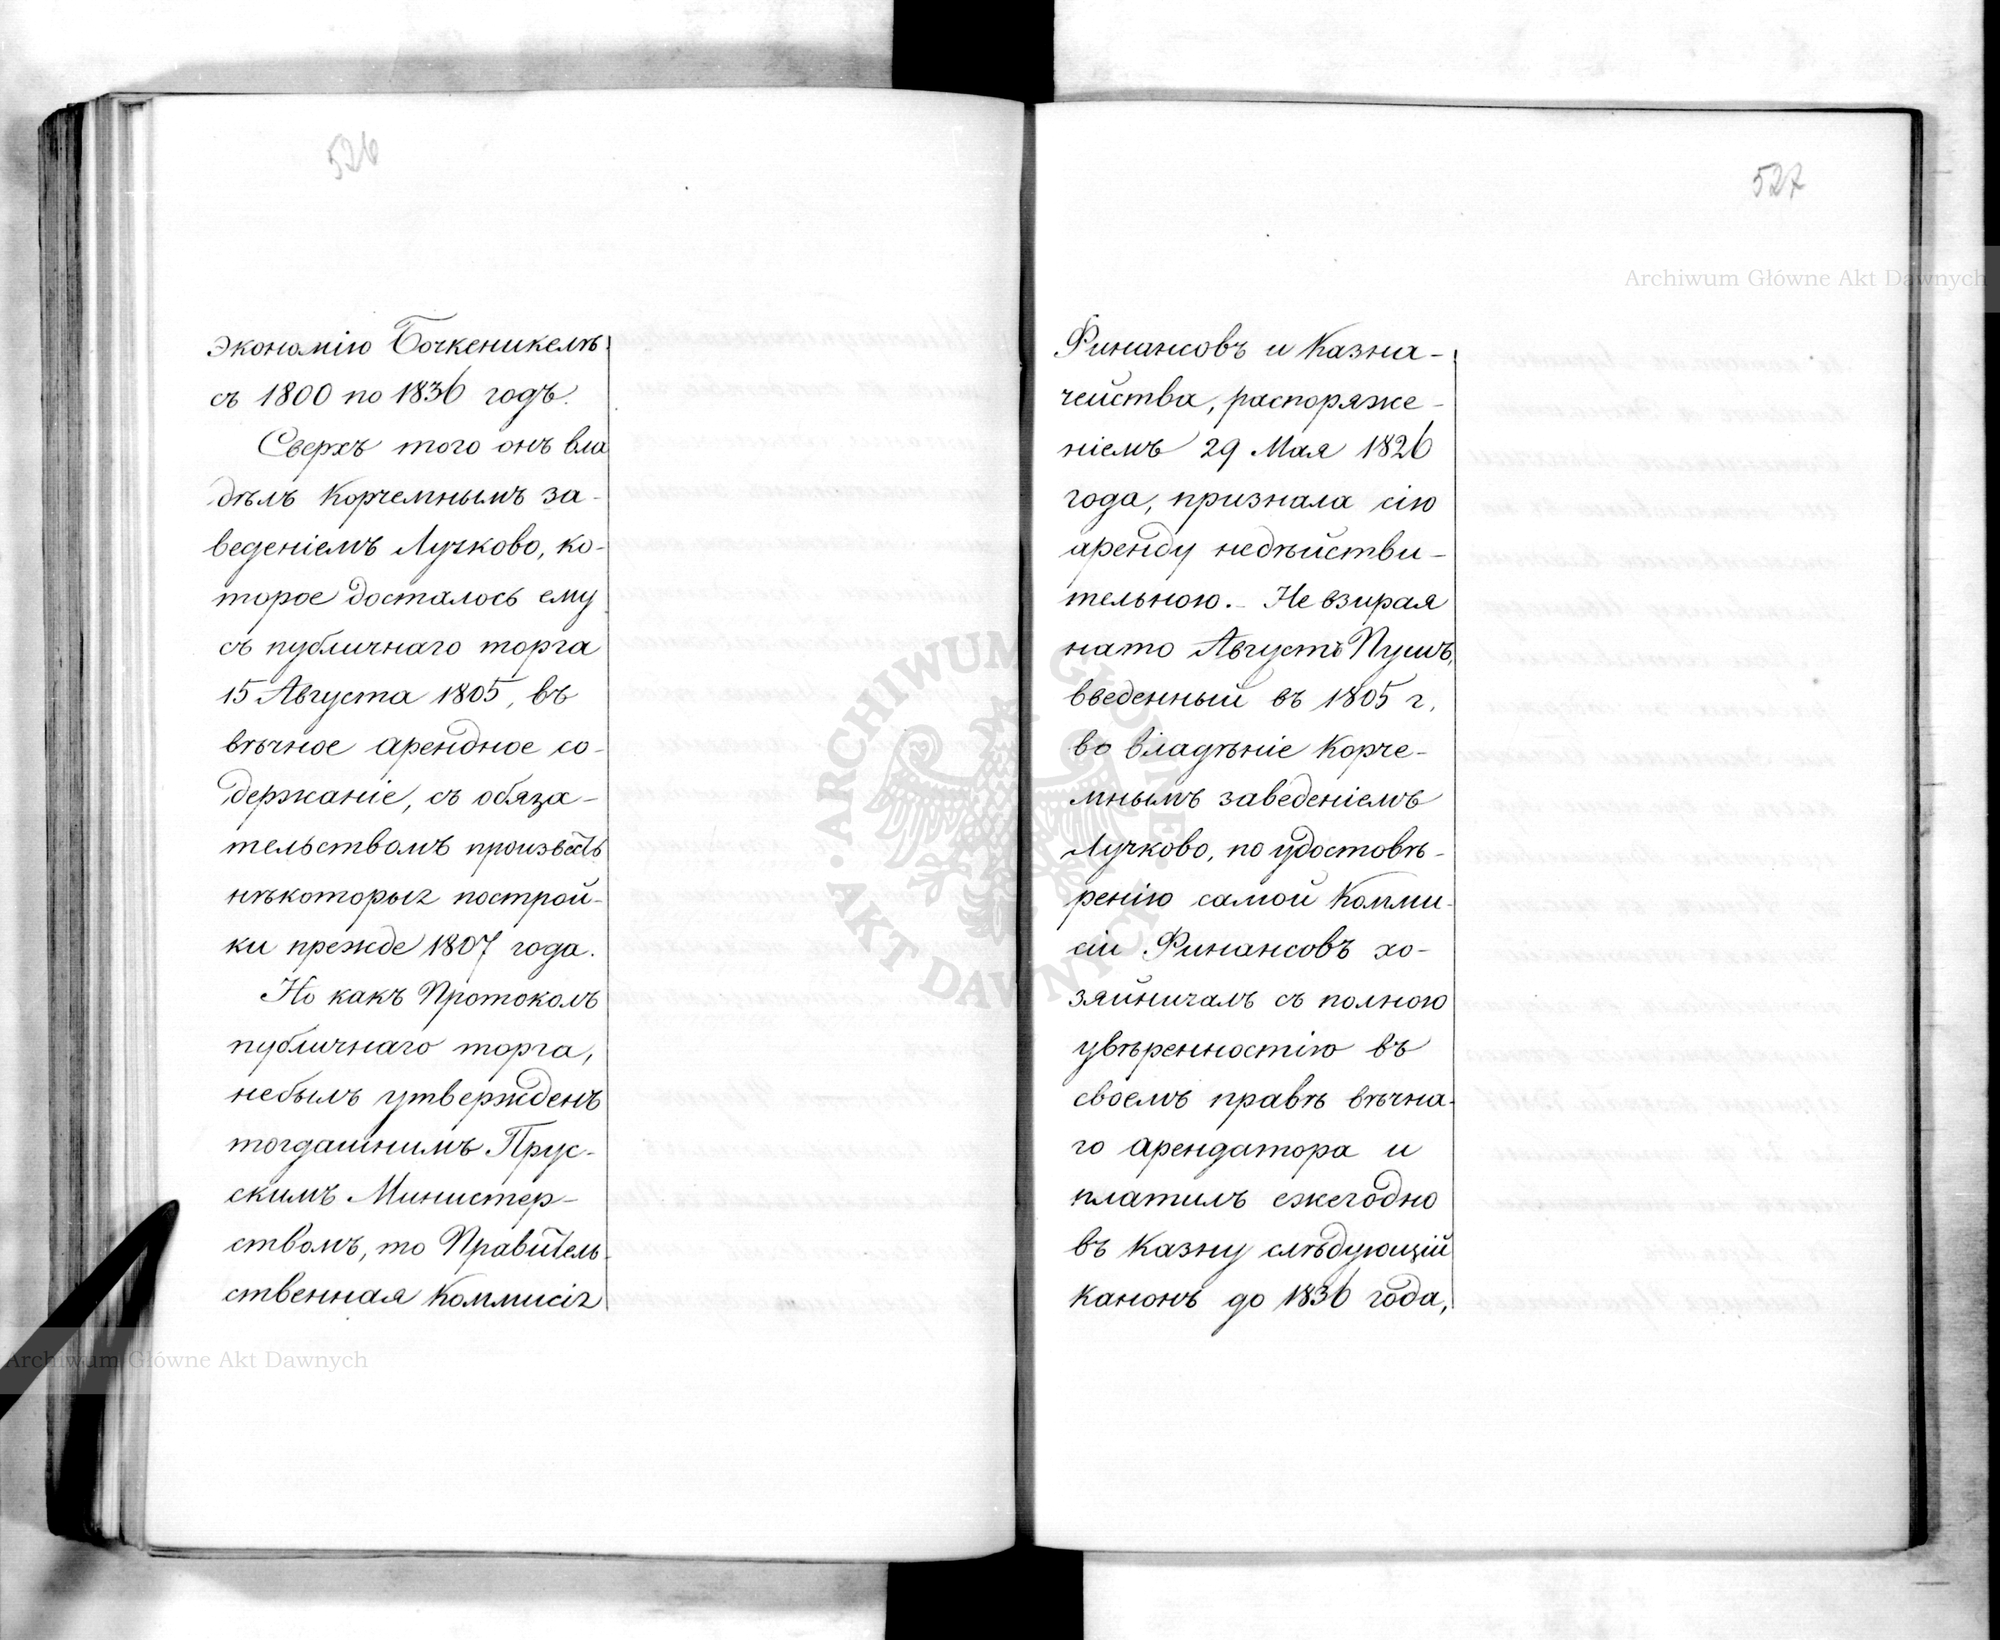 526
экономію Бочкеникелъ
съ 1800 по 1836 годъ.
Сверхъ того онъ вла
дѣлъ Корчемнымъ за-
веденіемъ Лучково, ко-
торое досталось ему
съ публичнаго торга
15 Августа 1805, въ
вѣчное арендное со-
держаніе, съ обяза-
тельствомъ произвесть
нѣкоторыя построй-
ки прежде 1807 года.
Но какъ Протоколъ
публичнаго торга,
небылъ утвержденъ
тогдашнимъ Прус-
скимъ Министер-
ствомъ, то Правитель-
ственная Коммисія
527
Финансовъ и Казна-
чейства, распоряже-
ніемъ 29 Мая 1826
года, признала сію
аренду недѣйстви-
тельною. - Не взирая
на то Августъ Пушъ,
введенный въ 1805 г.
во владѣніе Корче-
мнымъ заведеніемъ
Лучково, по удостовѣ-
ренію самой Комми-
сіи Финансовъ хо-
зяйничалъ съ полною
увѣренностію въ
своемъ правѣ вѣчна-
го арендатора и
платилъ ежегодно
въ Казну слѣдующій
Канонъ до 1836 года,
Archiwum Główne Akt Dawnych
Archiwum Główne Akt Dawnych
ARCHIWUM GŁÓWNE AKT DAWNYCH